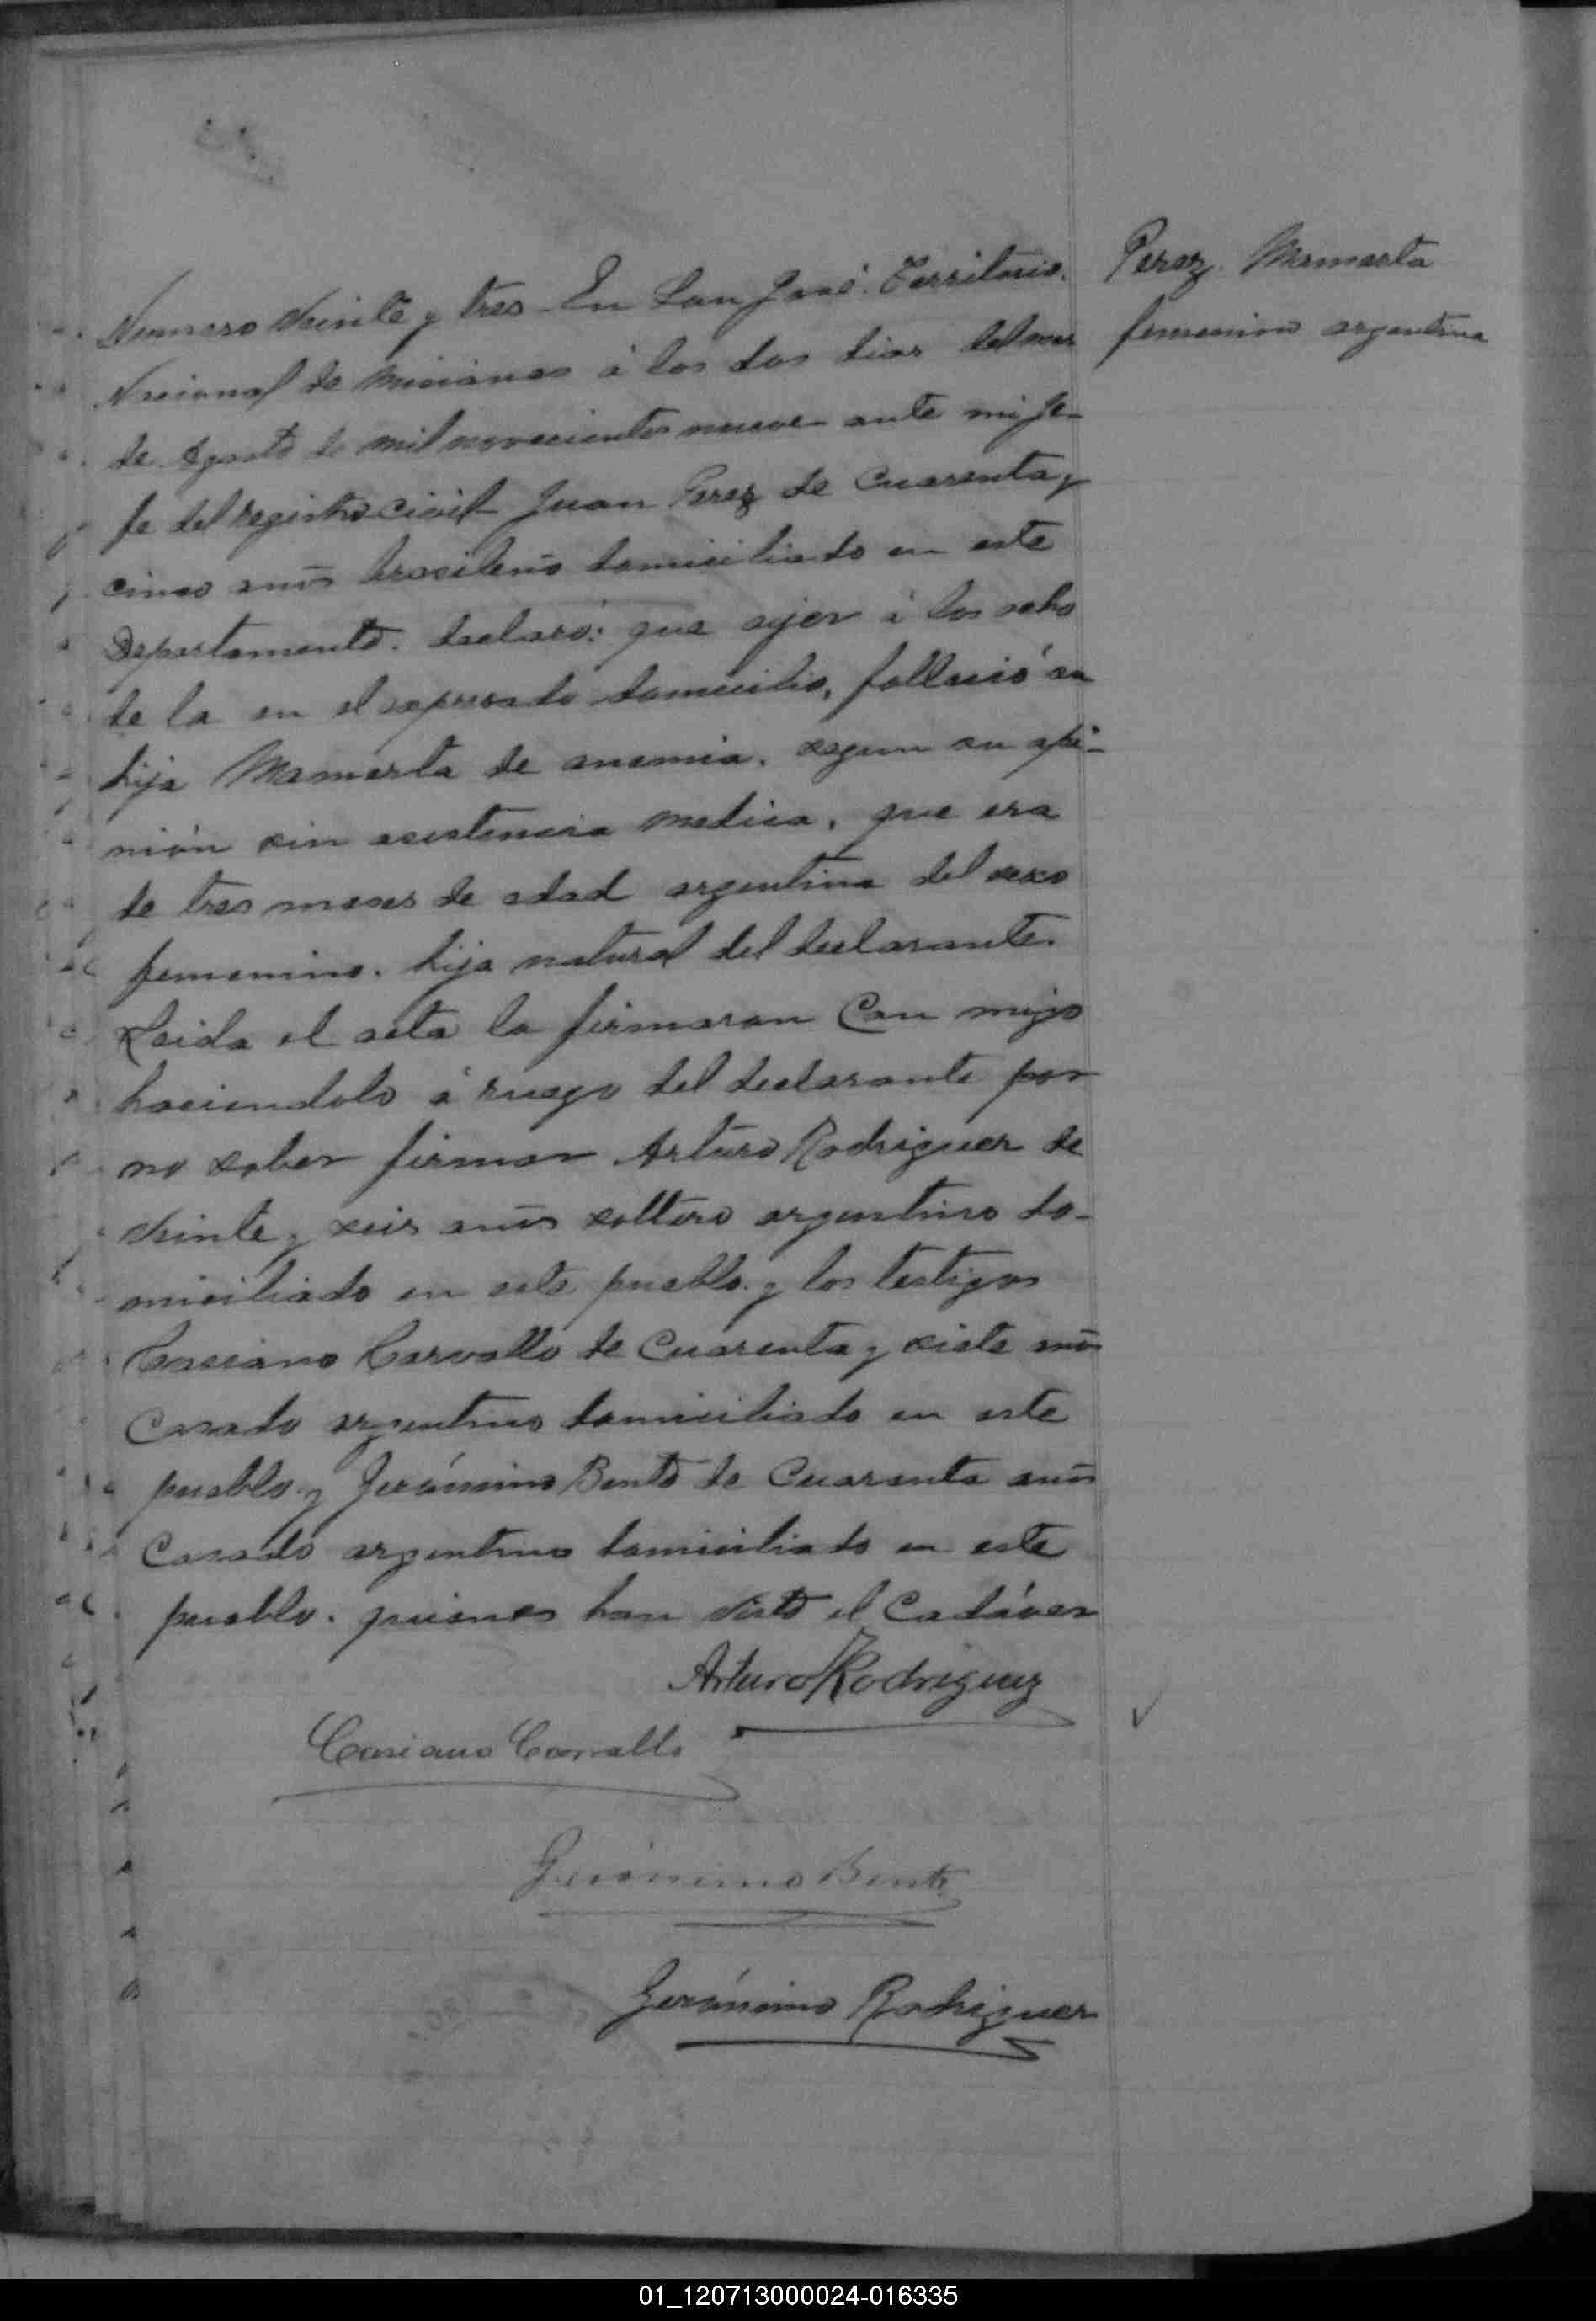 Perez. Mamerta
femenino argentina
Numero veinte y tres - En San José. Territorio.
Nacional de Misiones á los dos dias del mes
de Agosto de mil novecientos nueve - ante mi Je-
fe del registro civil - Juan Perez de cuarenta y
cinco anõs brasilenõ domiciliado en este
Departamento. declaró: que ayer á las ocho
de la en el espresado domicilio, fallecio' su
hija Mamerta de anemia. segun su opi-
nión sin asistencia medica, que era
de tres meses de edad argentina del sexo
femenino. hija natural del declarante.
Leida el acta la firmaron Con migo
haciendolo á ruego del declarante por
no saber firmar Arturo Rodriguez de
veinte y seis anõs soltero argentino do-
miciliado en este pueblo. y los testigos
Casiano Carvallo de Cuarenta y siete anõs
Casado argentino domiciliado en este
pueblo y Jerónimo Bento de Cuarenta anõs
Casado argentino domiciliado en este
pueblo. quienes han visto el Cadáver
Arturo Rodriguez
Casiano Carvallo
Gerónimo Bento
Gerónimo Rodriguez
01_120713000024-016335